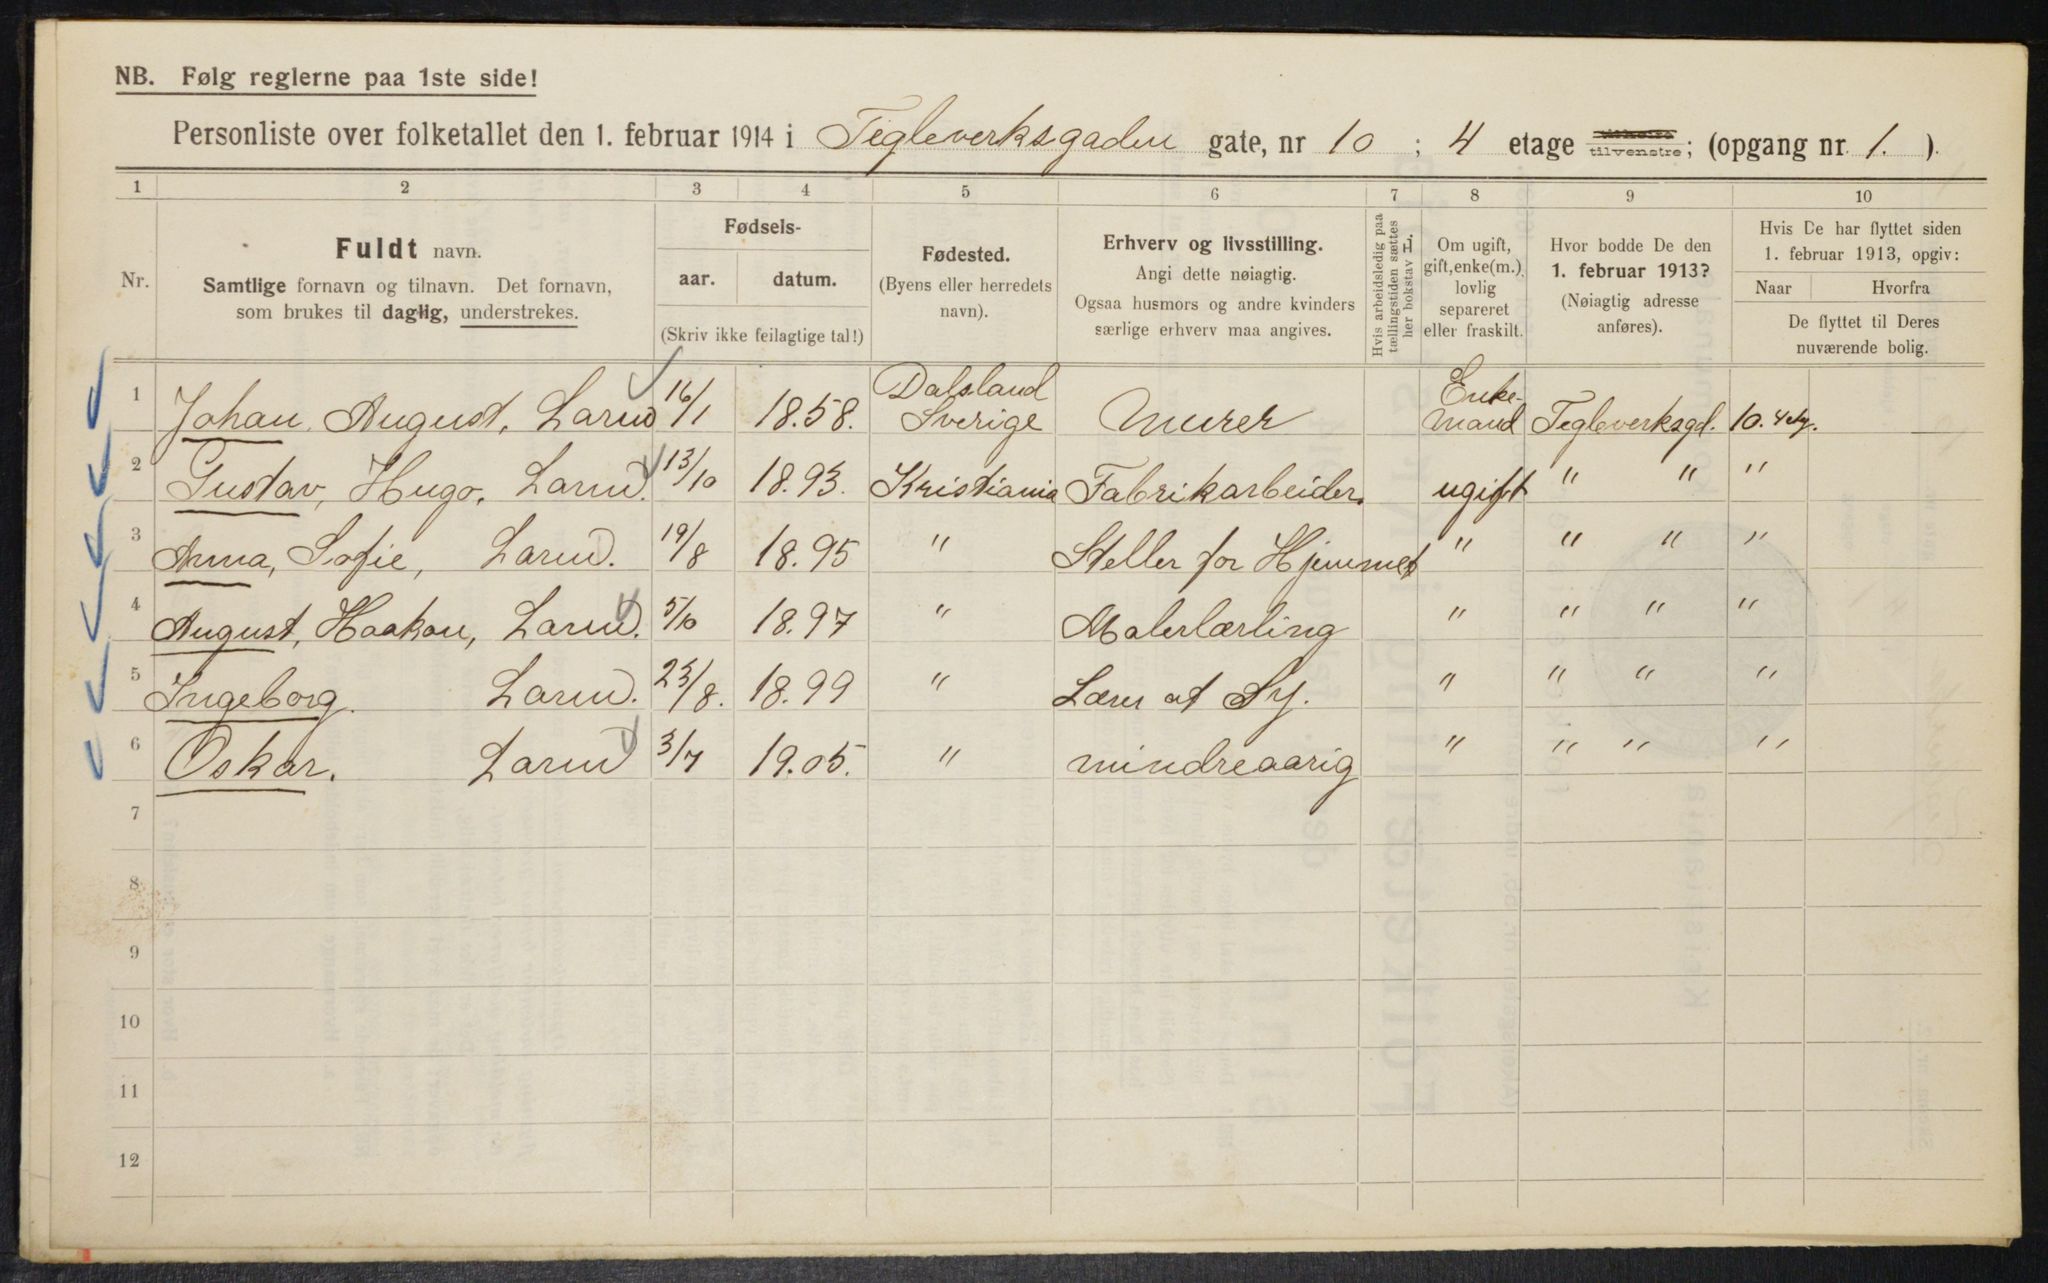 NB. Følg reglerne paa 1ste side!
Personliste over folketallet den 1. februar 1914 i Tegleverksgaden gate, nr 10 ; 4 etage tilhøire tilvenstre; (opgang nr. 1. ).
1 2 3 4 5 6 7 8 9 10
Nr.
Fuldt navn.
Samtlige fornavn og tilnavn. Det fornavn,
som brukes til daglig, understrekes.
Fødsels-
aar. datum.
(Skriv ikke feilagtige tal!)
Fødested.
(Byens eller herredets
navn).
Erhverv og livsstilling.
Angi dette nøiagtig.
Ogsaa husmors og andre kvinders
særlige erhverv maa angives.
Hvis arbeidsledig paa
tællingstiden sættes
her bokstav L.
Om ugift,
gift, enke(m.),
lovlig
separeret
eller fraskilt.
Hvor bodde De den
1. februar 1913?
(Nøiagtig adresse
anføres).
Hvis De har flyttet siden
1. februar 1913, opgiv:
Naar Hvorfra
De flyttet til Deres
nuværende bolig.
1 Johan, August, Larud 16/1 18.58. Dalsland Sverige Murer Enke-mand Tegleverksgd. 10. 4 etg.
2 Gustav, Hugo, Larud. 13/10 18.93. Kristiania Fabrikarbeider. ugift " " "
3 Anna, Sofie, Larud. 19/8 18.95 " Steller for Hjemmet " " " "
4 August, Haakon, Larud. 5/10 18.97 " Malerlærling " " " "
5 Ingeborg. Larud. 23/8. 18.99 " Lærer at Sy. " " " "
6 Oskar. Larud 3/7 19.05. " mindreaarig " " " "
7
8
9
10
11
12